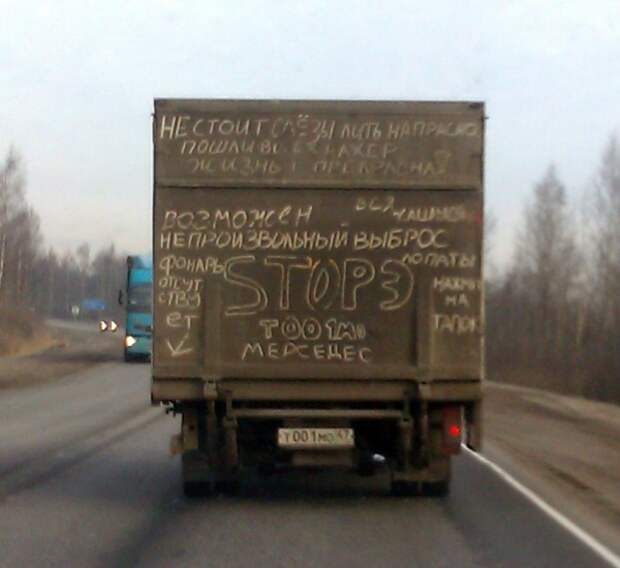 НЕ СТОИТ СЛЁЗЫ ЛИТЬ НАПРАСНО
ПОШЛИ ВСЕХ НАХЕР
ЖИЗНЬ ПРЕКРАСНА!
ВОЗМОЖЕН
НЕПРОИЗВОЛЬНЫЙ ВЫБРОС
ЛОПАТЫ
ФОНАРЬ
ОТСУТ
СТВУ
ЕТ
STOPЭ
НАЖМИ
НА
ТАПОК
Т001МО
МЕРСЕДЕС
Т001МО47